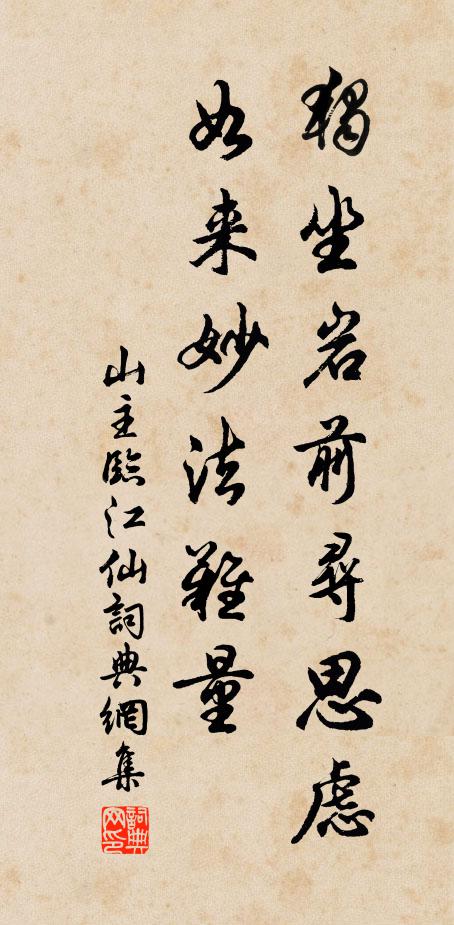 獨坐岩前尋思慮
如来妙法難量
山主臨江仙詞典網集
詞典网印